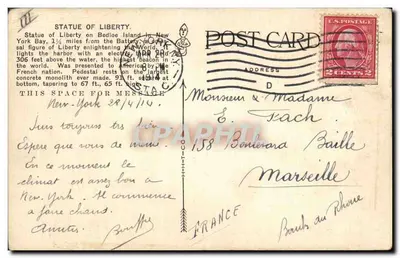 STATUE OF LIBERTY.
Statue of Liberty on Bedloe Island in New
York Bay, 1½ miles from the Battery.
sal figure of Liberty enlightening the World,
lights the harbor with an electric
306 feet above the water, the highest beacon in
the world. Was presented to America by the
French nation. Pedestal rests on the largest
concrete monolith ever made, 91 ft.
bottom, tapering to 67 ft, 65 ft.
THIS SPACE FOR MESSAGE
POST CARD
ADDRESS
APR 28
1914
STA
D
U.S. POSTAGE
2 CENTS 2
New-York 28/4/14.
toujours très
Espère que vous de même
En ce moment le
climat est assez bon à
New-York. Il commence
à faire chaud.
Amitiés
Monsieur & Madame
E. Pach
158 Boulevard Baille
Marseille
Bouches du Rhône
FRANCE
CPAPHIL